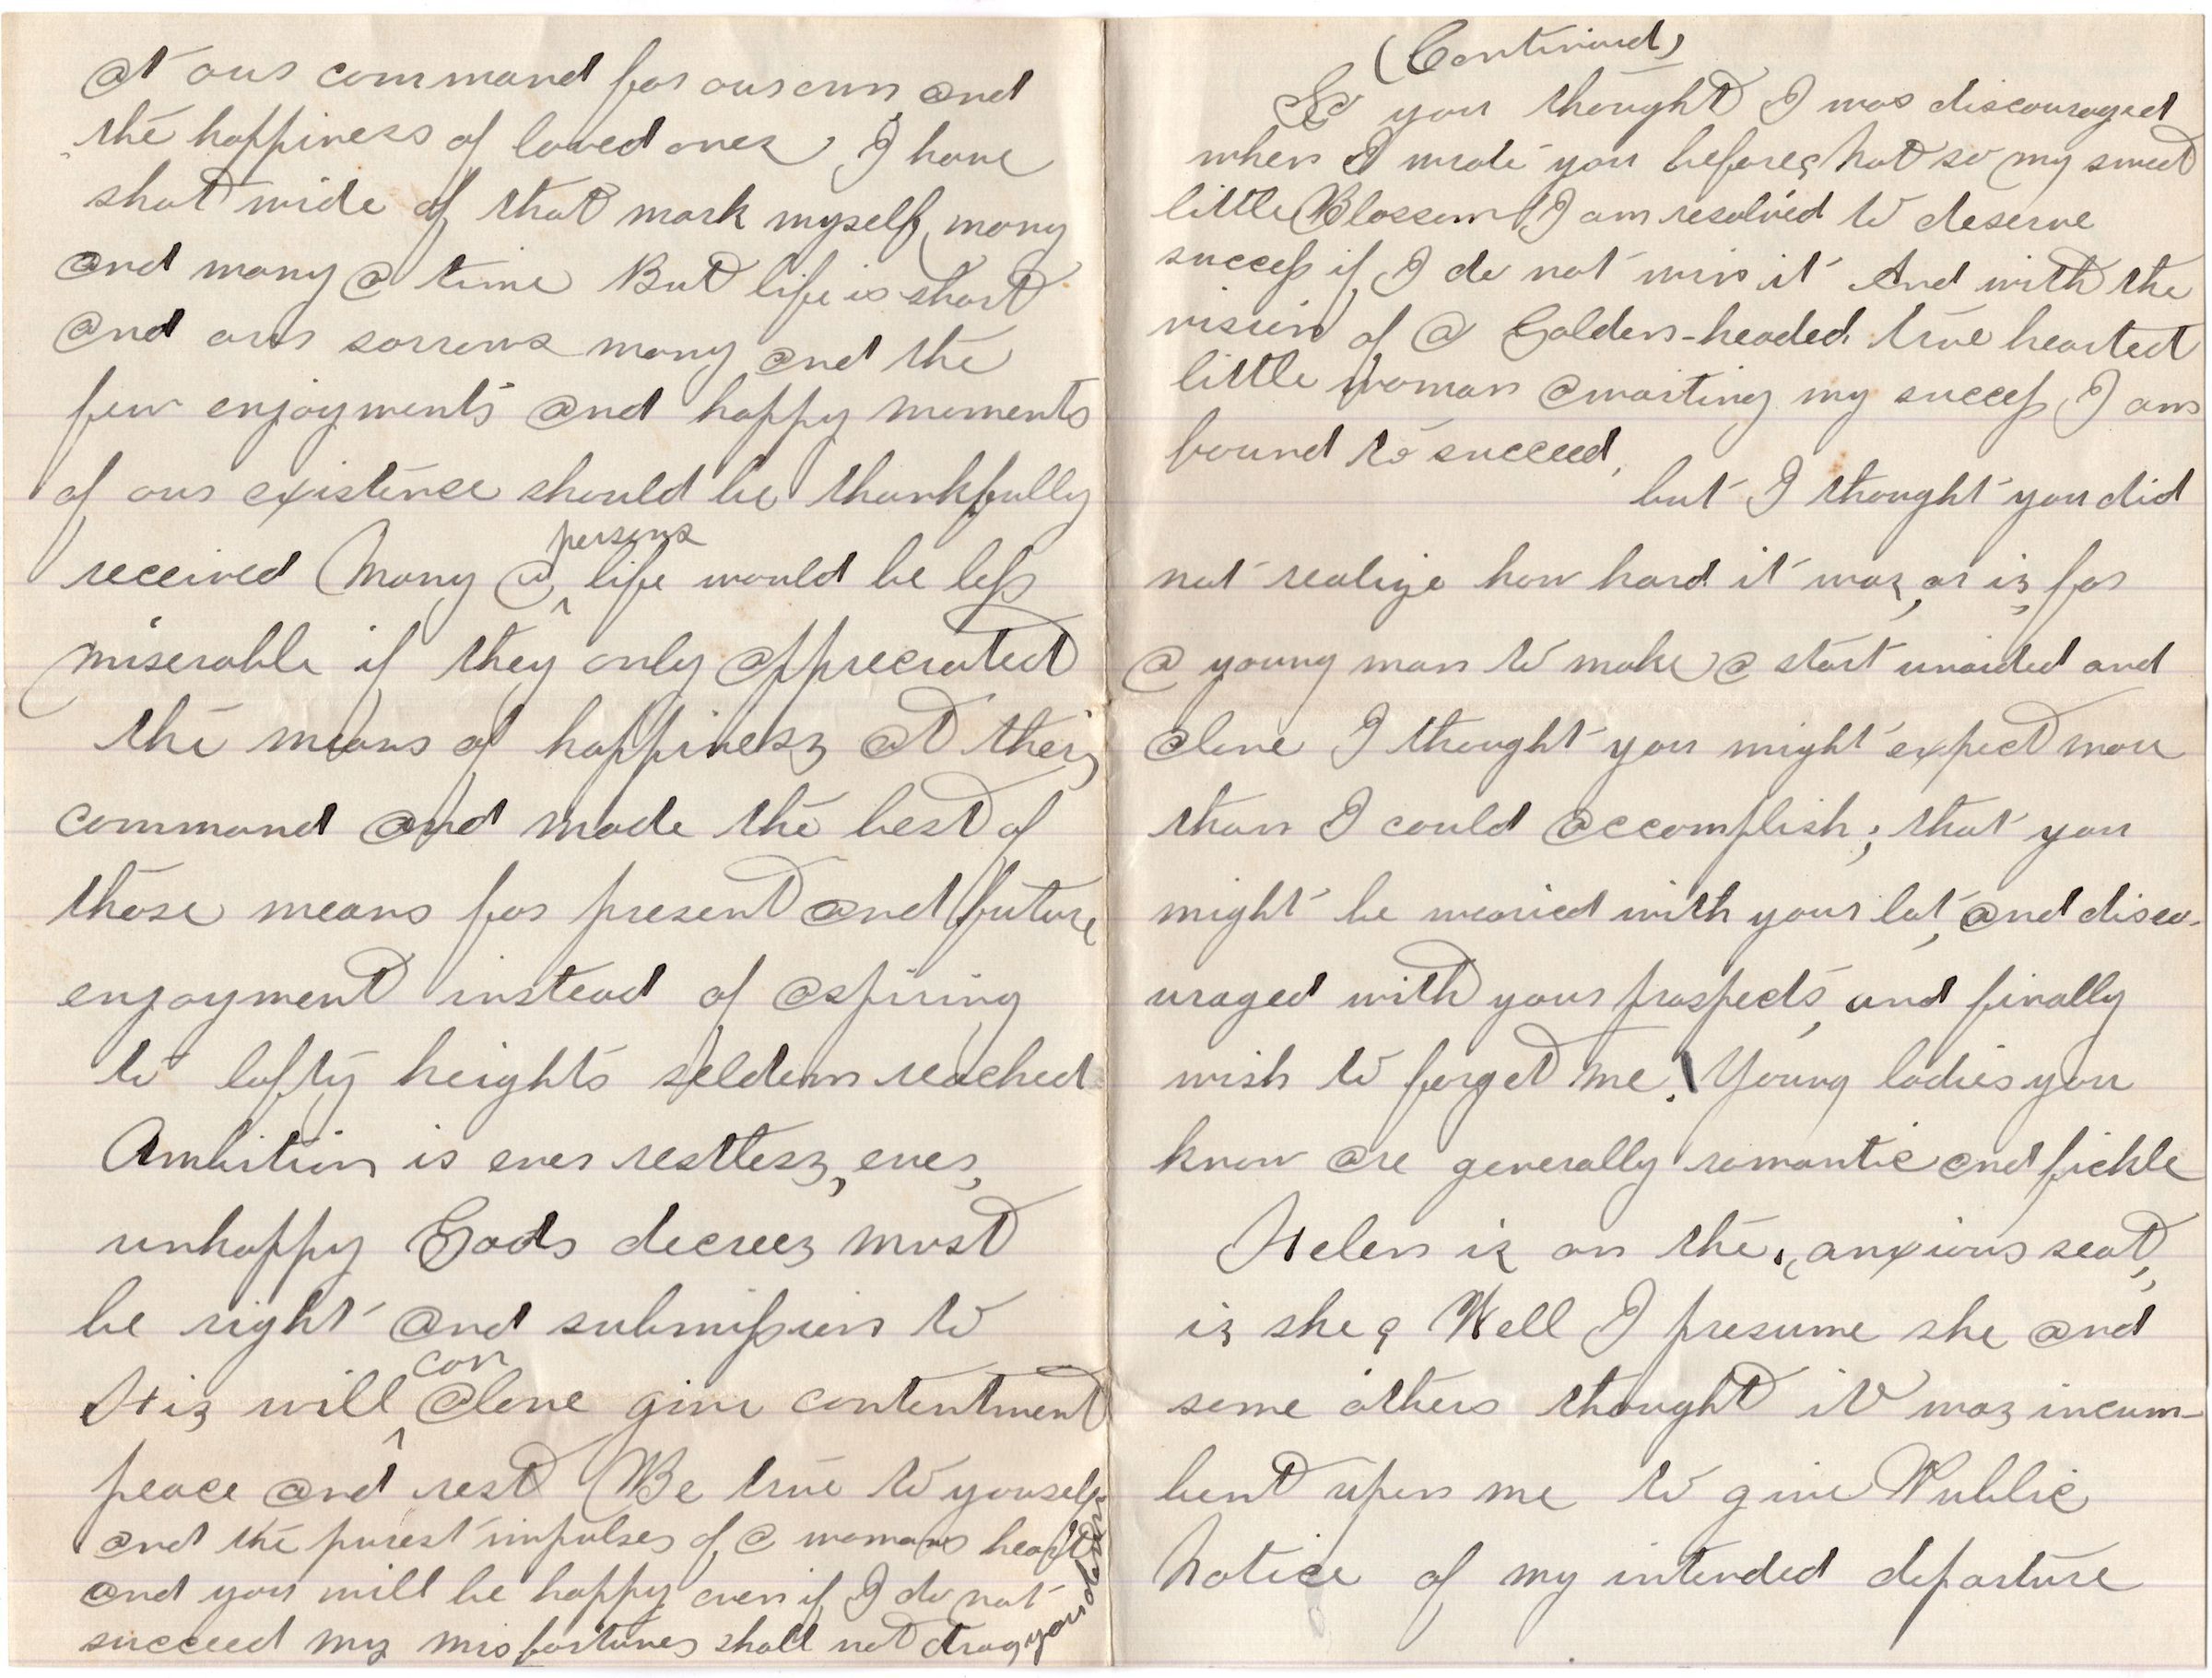 at our command for our own and
the happiness of loved ones I have
shot wide of that mark myself, many
and many a time But life is short
and our sorrows many and the
few enjoyments and happy moments
of our existence should be thankfully
persons
received Many a life would be less
miserable if they only appreciated
the means of happiness at their
command and made the best of
those means for present and future
enjoyment instead of aspiring
to lofty heights seldom reached
Ambition is ever restless, ever,
unhappy Gods decrees must
be right and submission to
can
His will alone give contentment
peace and rest Be true to yourself
and the purest impulses of a womans heart
and you will be happy even if I do not
succeed my misfortunes shall not drag
you down
(Continued)
So you thought I was discouraged
when I wrote you before? Not so my sweet
little Blossom I am resolved to deserve
success if I do not win it And with the
vision of a Golden-headed true hearted
little woman awaiting my success I am
bound to succeed,
but I thought you did
not realize how hard it was, or is, for
a young man to make a start unaided and
alone I thought you might expect more
than I could accomplish; that you
might be wearied with your lot, and disco-
uraged with your prospects, and finally
wish to forget me. Young ladies you
know are generally romantic and fickle
Helen is on the "anxious seat,"
is she? Well I presume she and
some others thought it was incum-
bent upon me to give Public
Notice of my intended departure